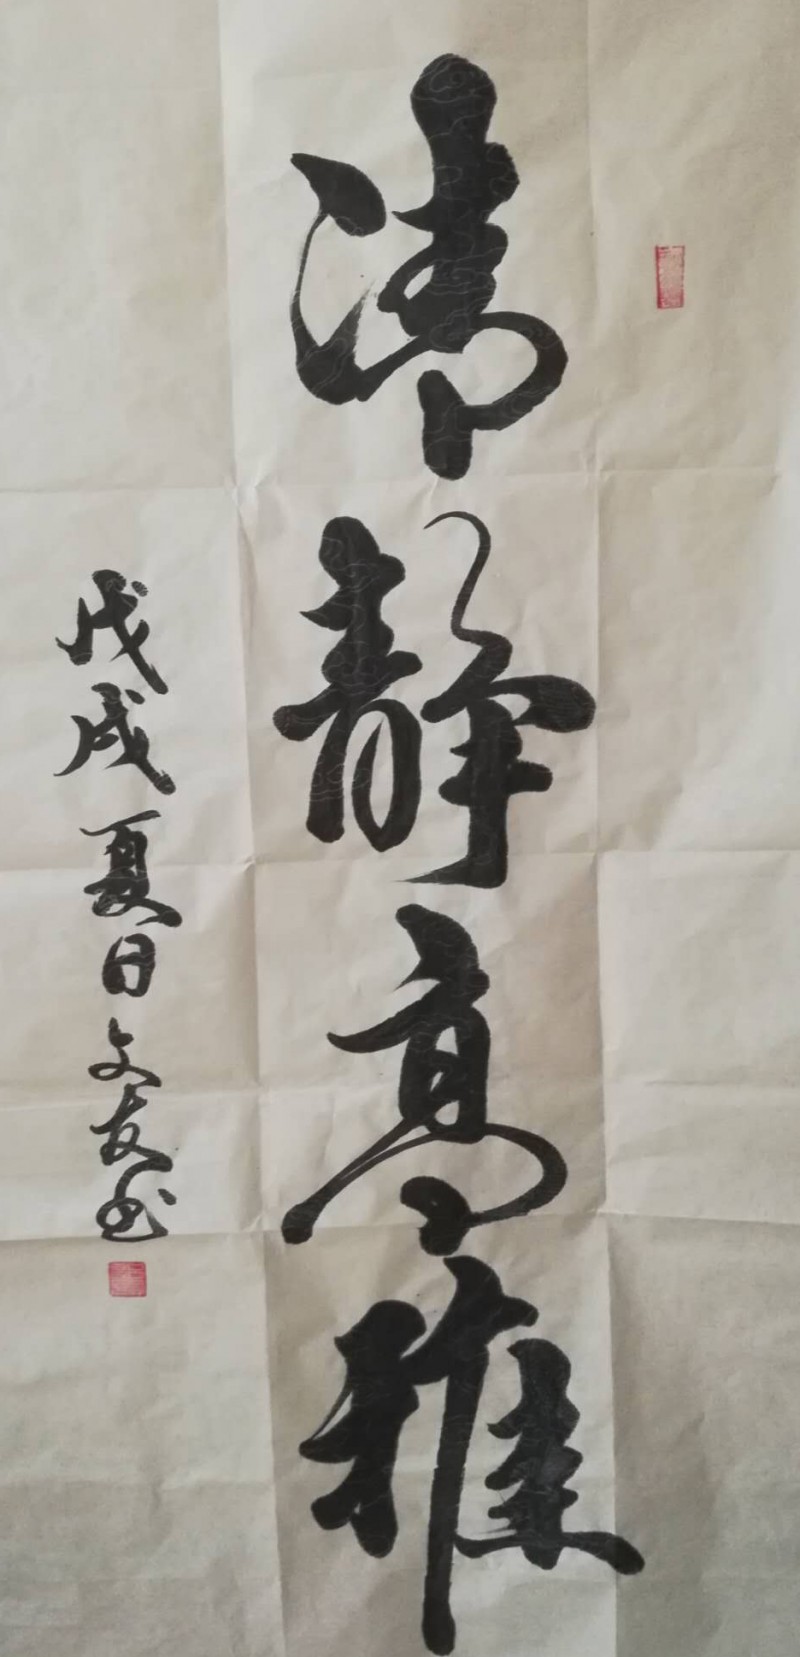 清静高雅
戊戌夏日文友书